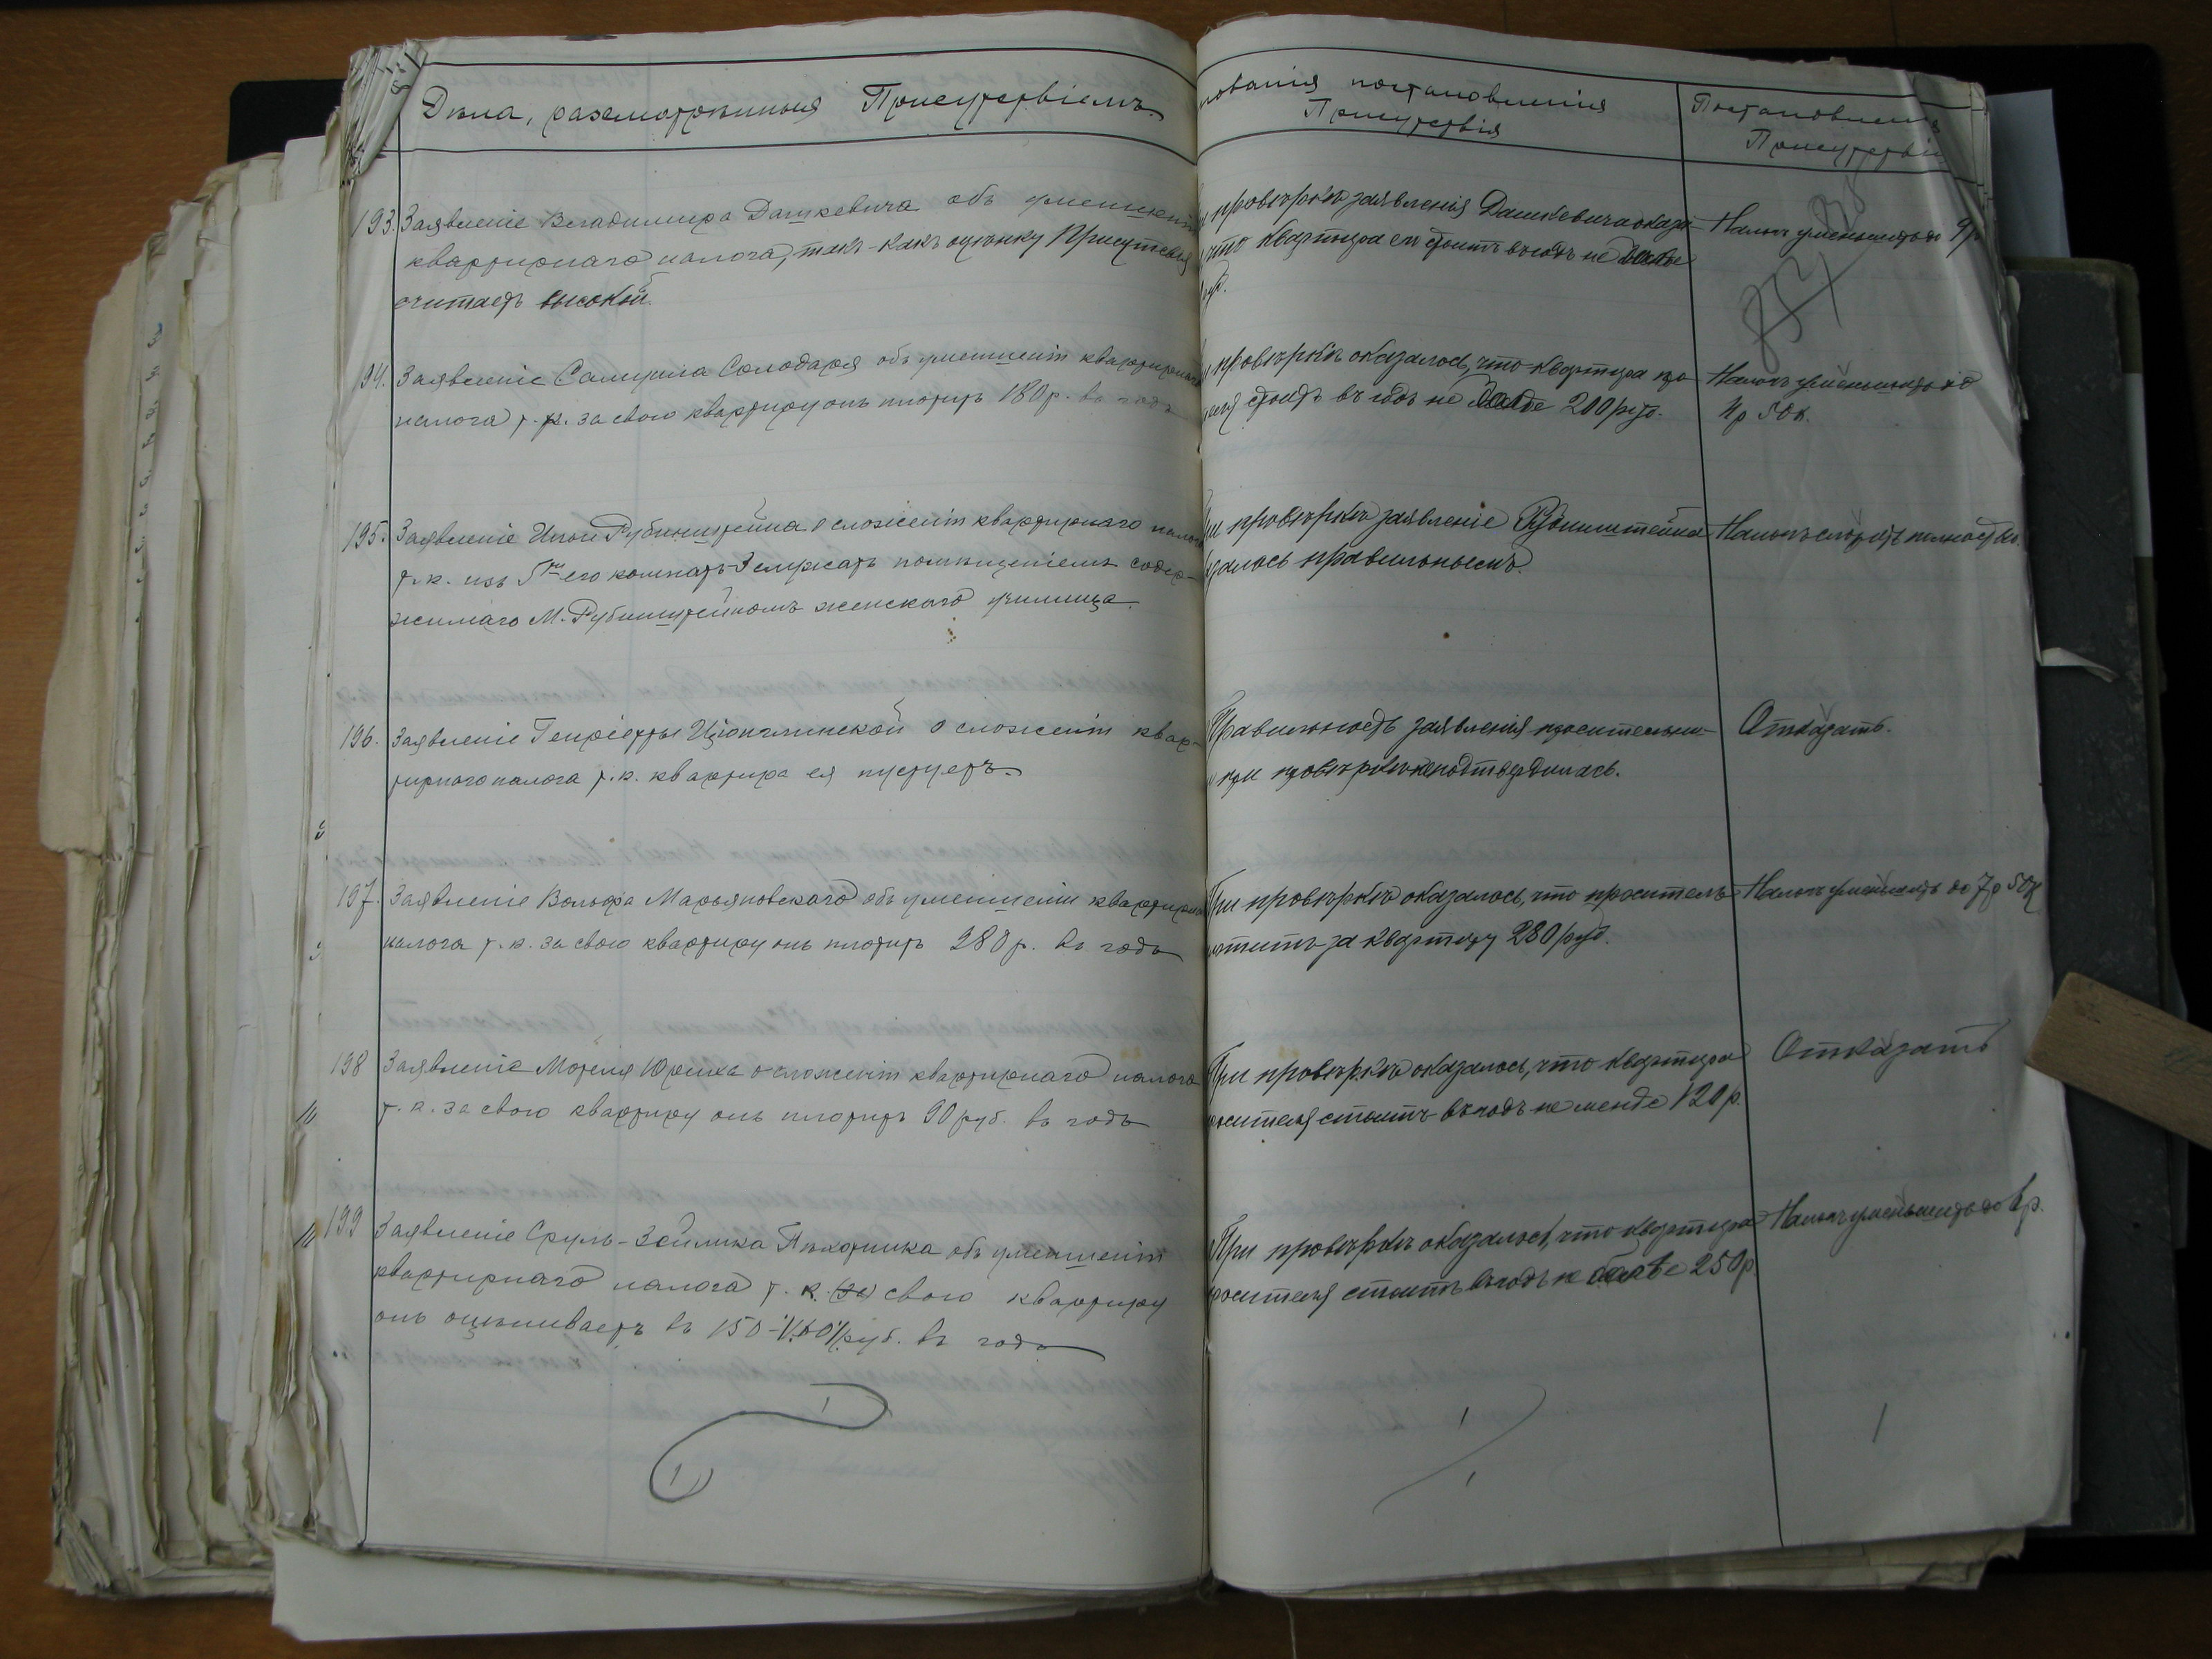 Дѣла, разсмотрѣнныя Присутствіемъ
193. Заявленіе Владимира Дашкевича объ уменьшеніи
квартирнаго налога, такъ-какъ оцѣнку Присутствія
считаетъ высокой.
94. Заявленіе Самуила Солодаря объ уменьшеніи квартирнаго
налога т. к. за свою квартиру онъ платитъ 180 р. въ годъ
195. Заявленіе Рубинштейна о сложеніи квартирнаго налога
т. к. изъ 5ти его комнатъ 3 служатъ помѣщеніемъ содер-
жимаго М. Рубинштейномъ женскаго училища.
196. Заявленіе Генріетты Ціончлинской о сложеніи квар-
тирнаго налога т. к. квартира ея пустуетъ.
197. Заявленіе Вольфа Марьяновскаго объ уменьшеніи квартирнаго
налога т. к. за свою квартиру онъ платитъ 280 р. въ годъ
198 Заявленіе Мотеля Юрика о сложеніи квартирнаго налога
т. к. за свою квартиру онъ платитъ 90 руб. въ годъ
199 Заявленіе Сруль-Зейлика Пѣхотника объ уменьшеніи
квартирнаго налога т. к. (за) свою квартиру
онъ оцѣниваетъ въ 150 - руб. въ годъ
нованія постановленія
Присутствія
провѣркѣ заявленія Дашкевича оказа-
что квартира его стоитъ въ годъ не болѣе
руб.
провѣркѣ оказалось, что квартира про-
теля стоитъ въ годъ не болѣе 200 руб.
и провѣркѣ заявленіе Рубинштейна
залось правильнымъ.
Правильность заявленія просительни-
при провѣркѣ не подтвердилась.
При провѣркѣ оказалось, что проситель
платитъ за квартиру 280 руб.
При провѣркѣ оказалось, что квартира
просителя стоитъ въ годъ не менѣе 120 р.
При провѣркѣ оказалось, что квартира
просителя стоитъ въ годъ не болѣе 250 р.
Постановленія
Присутствія
Налогъ уменьшить до 9 р
Налогъ уменьшить до
4 р 50 к.
Налогъ сложить полностью.
Отказать.
Налогъ уменьшить до 7 р 50 к
Отказать
Налогъ уменьшить до 6 р.